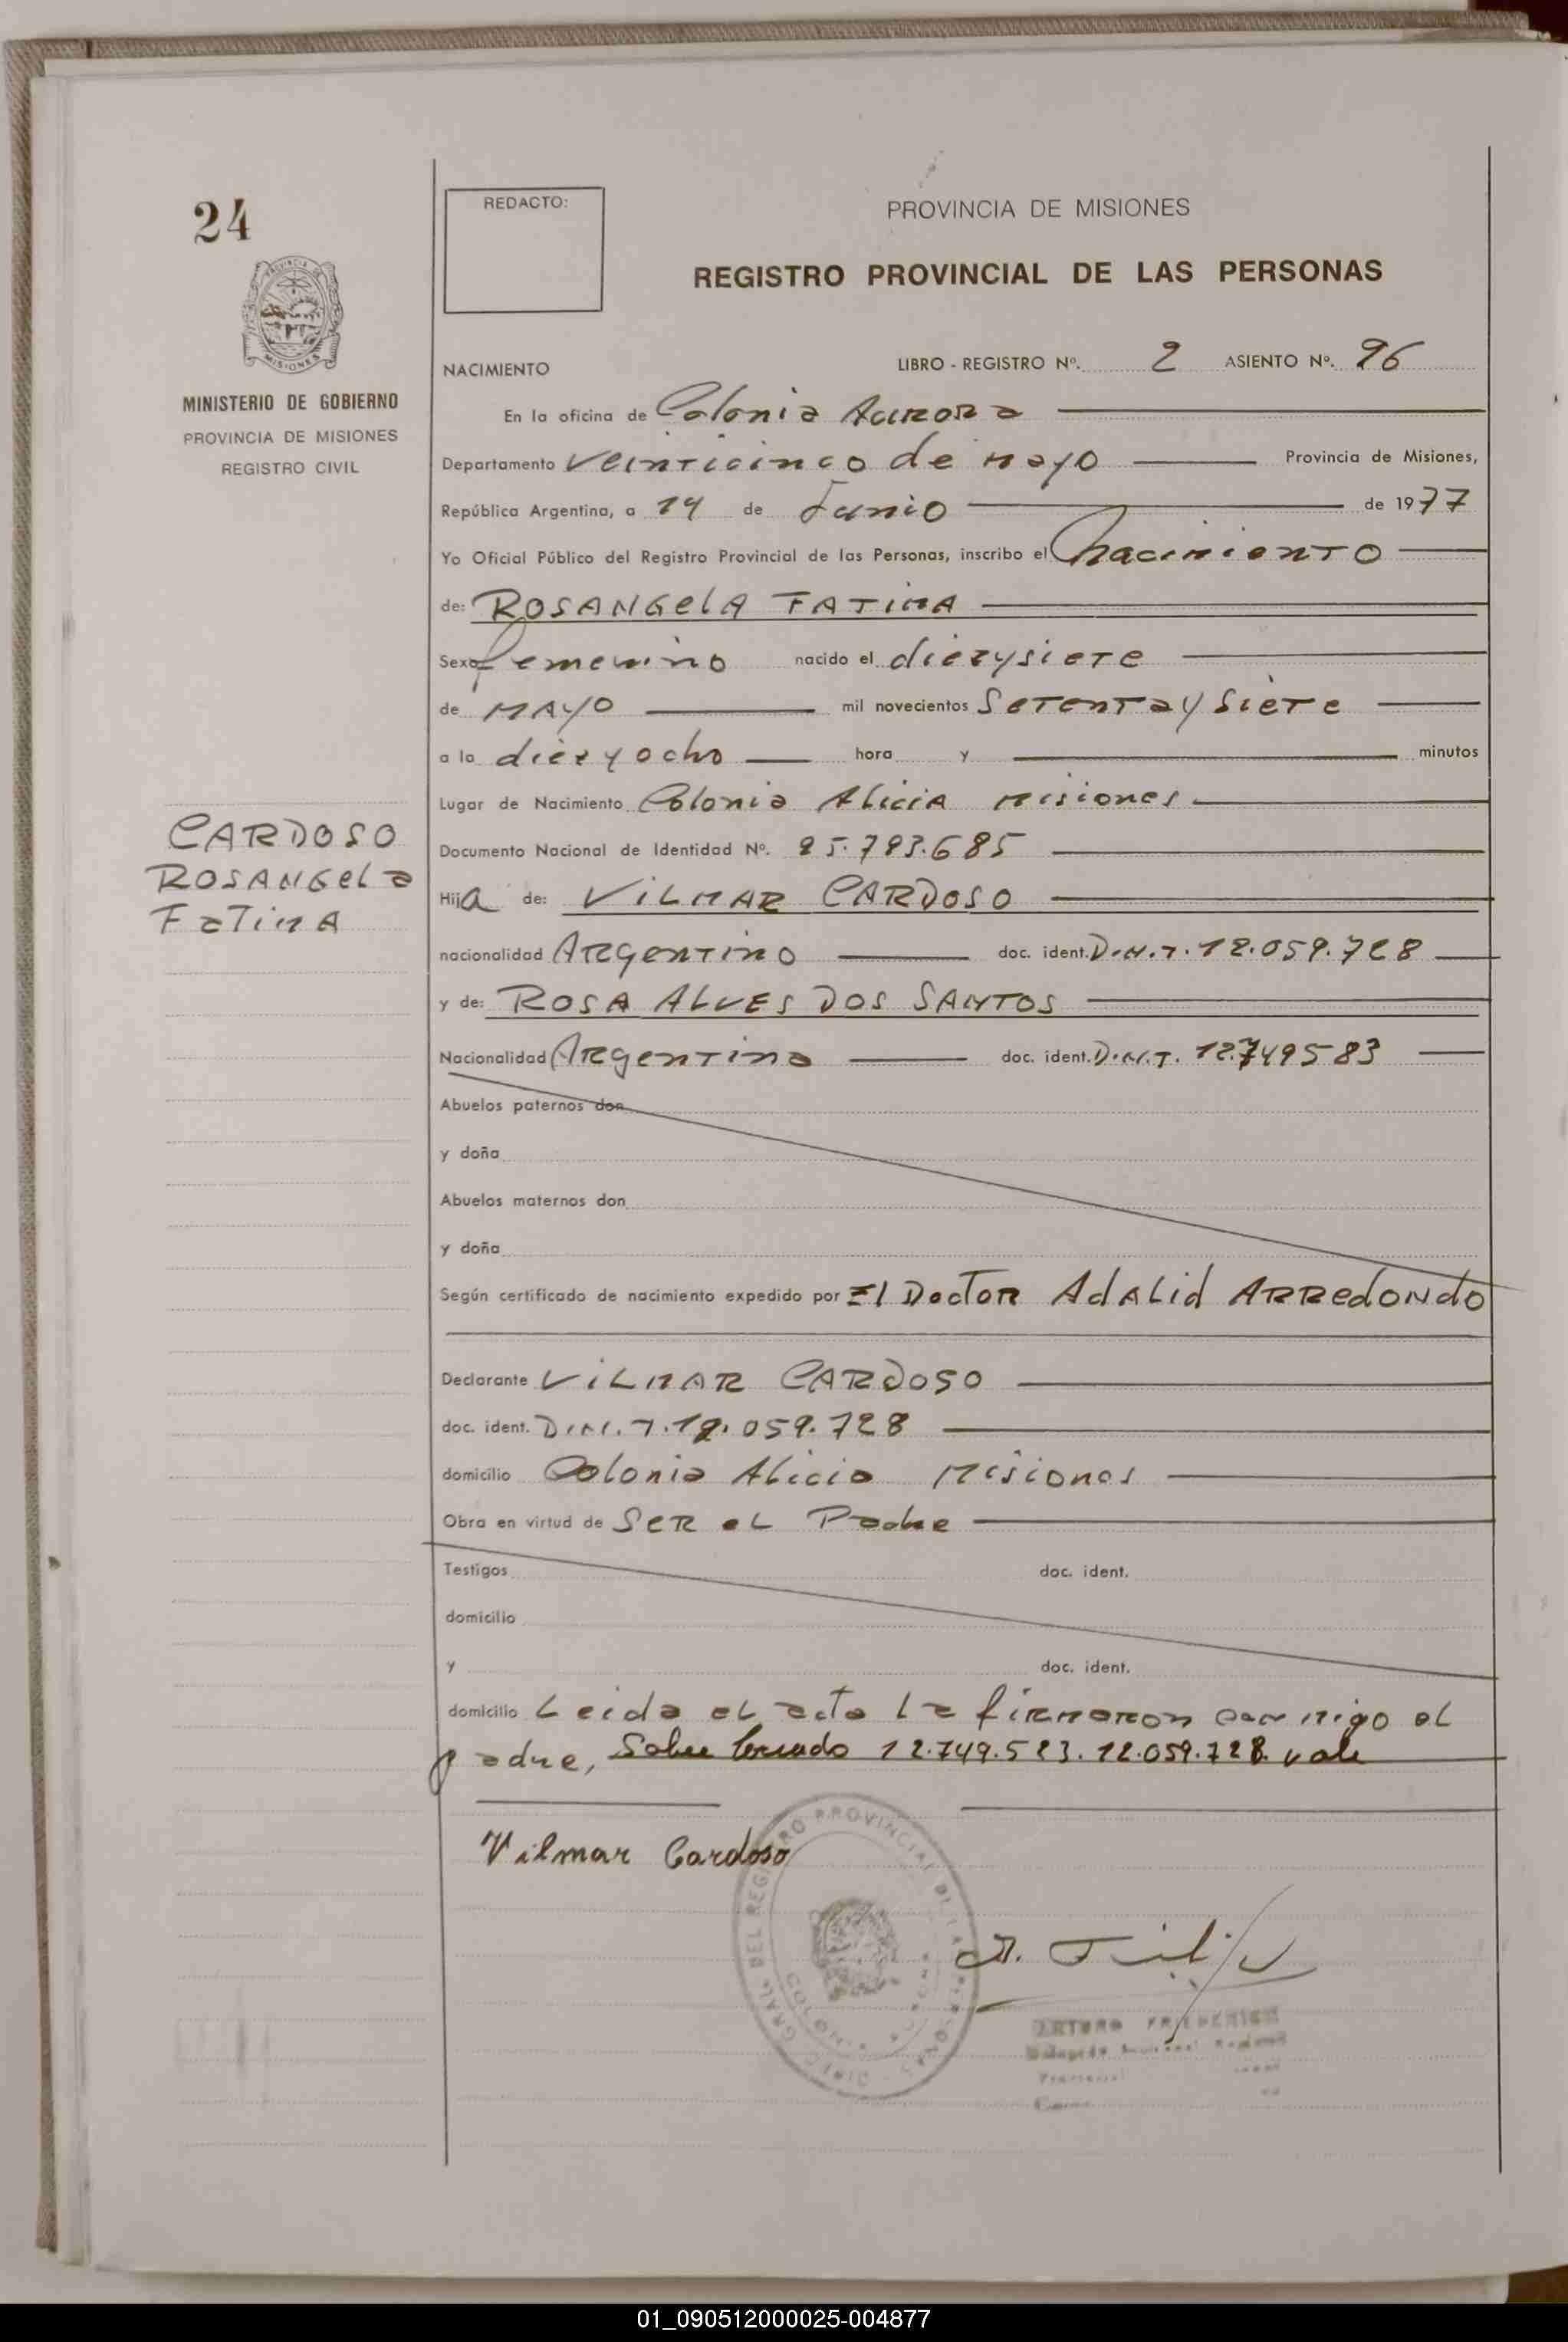 24
REDACTO:
PROVINCIA DE MISIONES
REGISTRO PROVINCIAL DE LAS PERSONAS
MISIONES
MINISTERIO DE GOBIERNO
PROVINCIA DE MISIONES
REGISTRO CIVIL
NACIMIENTO LIBRO - REGISTRO Nº. 2 ASIENTO Nº. 96
En la oficina de Colonia Aurora
Departamento Veinticinco de Mayo Provincia de Misiones,
República Argentina, a 14 de Junio de 1977
Yo Oficial Público del Registro Provincial de las Personas, inscribo el nacimiento
de: ROSANGELA FATIMA
Sexo femenino nacido el diezysiete
de MAYO mil novecientos Setentaysiete
a la diezyocho hora y minutos
Lugar de Nacimiento Colonia Alicia Misiones
CARDOSO
ROSANGELA
FATIMA
Documento Nacional de Identidad Nº. 25.793.685
Hija de: VILMAR CARDOSO
nacionalidad Argentino doc. ident. D.N.I. 12.059.728
y de: ROSA ALVES DOS SANTOS
Nacionalidad Argentina doc. ident. D.N.I. 12.749583
Abuelos paternos don
y doña
Abuelos maternos don
y doña
Según certificado de nacimiento expedido por El Doctor Adalid Arredondo
Declarante VILMAR CARDOSO
doc. ident. D.N.I. 12.059.728
domicilio Colonia Alicia Misiones
Obra en virtud de SER el Padre
Testigos doc. ident.
domicilio
y doc. ident.
domicilio Leida el acta la firmaron conmigo el
padre, Sobre borrado 12.749.583. 12.059.728. vale
Vilmar Cardoso
ARTURO FRIEDERICH
01_090512000025-004877